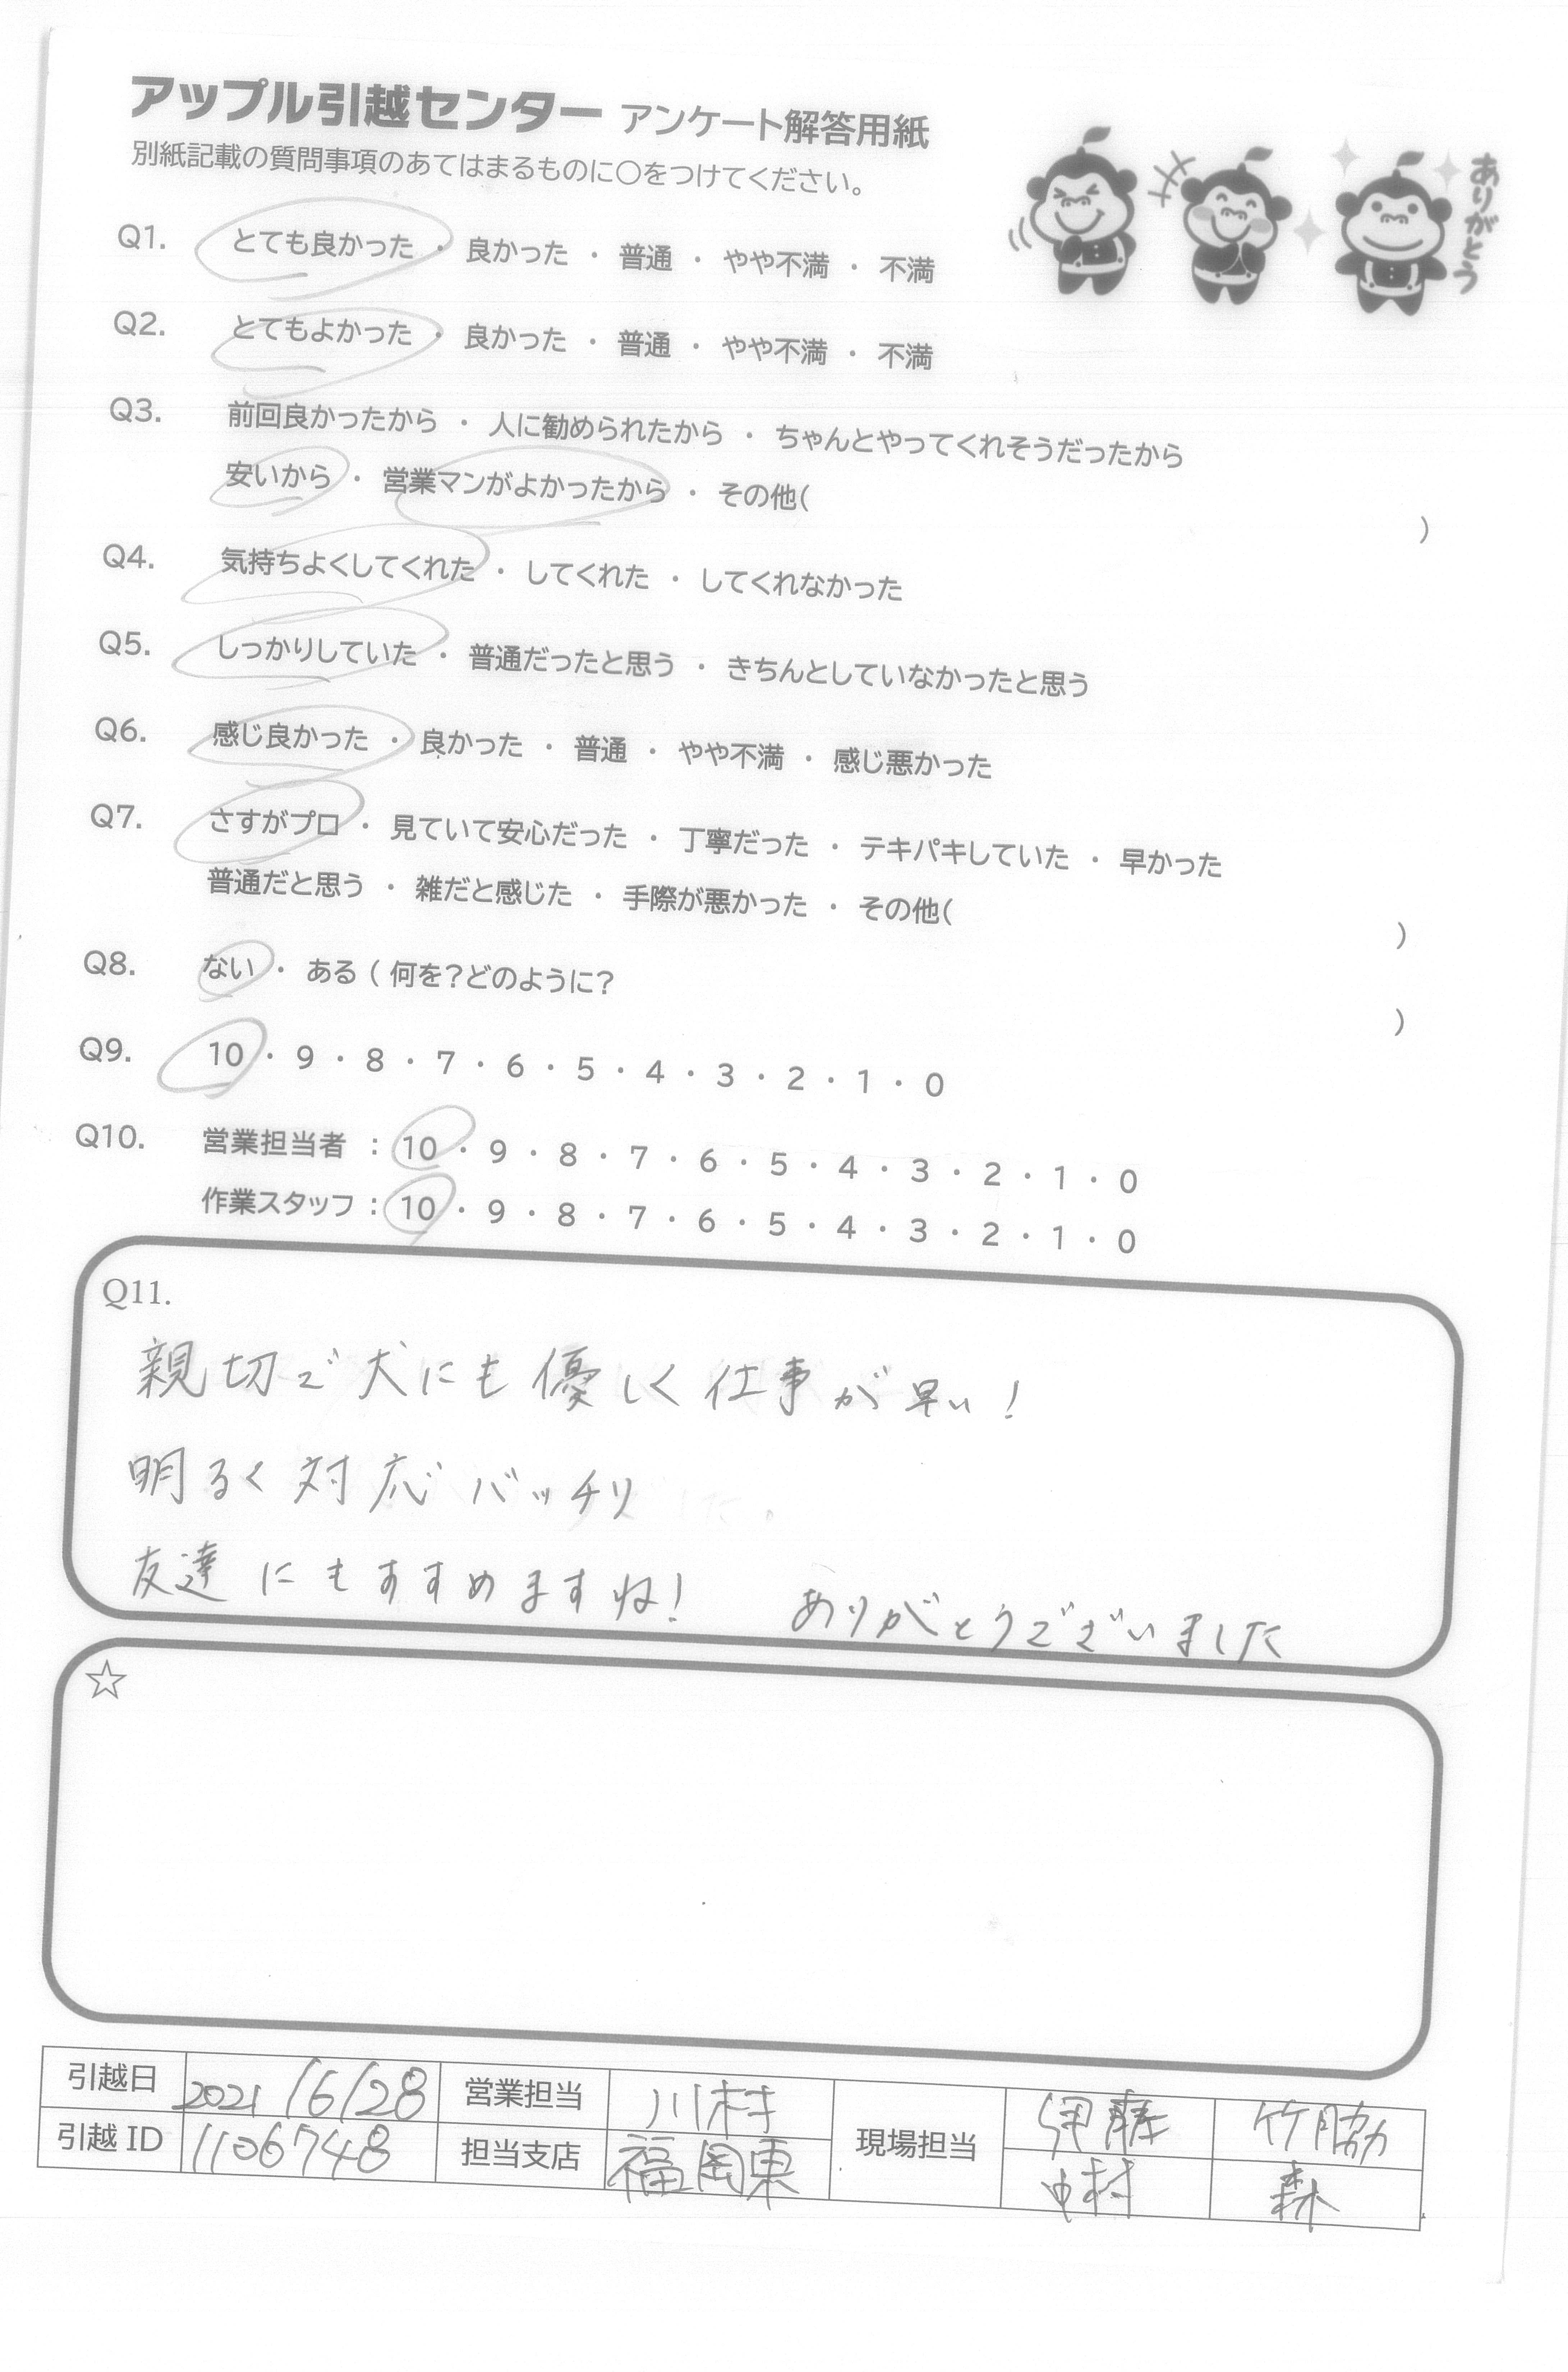 アップル引越センター アンケート解答用紙
別紙記載の質問事項のあてはまるものに○をつけてください。
ありがとう
Q1. とても良かった ・ 良かった ・ 普通 ・ やや不満 ・ 不満
Q2. とてもよかった ・ 良かった ・ 普通 ・ やや不満 ・ 不満
Q3. 前回良かったから ・ 人に勧められたから ・ ちゃんとやってくれそうだったから
安いから ・ 営業マンがよかったから ・ その他( )
Q4. 気持ちよくしてくれた ・ してくれた ・ してくれなかった
Q5. しっかりしていた ・ 普通だったと思う ・ きちんとしていなかったと思う
Q6. 感じ良かった ・ 良かった ・ 普通 ・ やや不満 ・ 感じ悪かった
Q7. さすがプロ ・ 見ていて安心だった ・ 丁寧だった ・ テキパキしていた ・ 早かった
普通だと思う ・ 雑だと感じた ・ 手際が悪かった ・ その他( )
Q8. ない ・ ある ( 何を?どのように? )
Q9. 10 ・ 9 ・ 8 ・ 7 ・ 6 ・ 5 ・ 4 ・ 3 ・ 2 ・ 1 ・ 0
Q10. 営業担当者 : 10 ・ 9 ・ 8 ・ 7 ・ 6 ・ 5 ・ 4 ・ 3 ・ 2 ・ 1 ・ 0
作業スタッフ : 10 ・ 9 ・ 8 ・ 7 ・ 6 ・ 5 ・ 4 ・ 3 ・ 2 ・ 1 ・ 0
Q11.
親切で犬にも優しく仕事が早い!
明るく対応バッチリ
友達にもすすめますね! ありがとうございました
☆
引越日 2021/6/28 営業担当 川村 現場担当 伊藤 竹脇
引越ID 1106748 担当支店 福岡東 中村 森